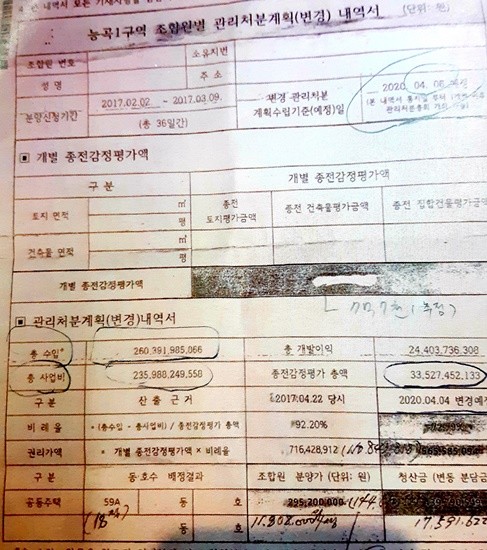 능곡1구역 조합원별 관리처분계획(변경) 내역서
(단위: 원)
조합원 번호 소유지번
성 명 주 소
분양신청기간 2017.02.02 - 2017.03.09. (총 36일간)
변경 관리처분 계획수립기준(예정)일
2020. 04. 06 예정
▣ 개별 종전감정평가액
구 분 개별 종전감정평가액
토지 면적 ㎡ 평
종전 토지평가금액 종전 건축물평가금액 종전 집합건물평가금액
건축물 면적 ㎡ 평
개별 종전감정평가액
▣ 관리처분계획(변경)내역서
총 수입* 260,391,985,066 총 개발이익 24,403,736,308
총 사업비 235,988,249,558 종전감정평가 총액 33,527,452,133
구 분 산 출 근 거 2017.04.22 당시 2020.04.04 변경예정
비 례 율 * (총수입 - 총사업비) / 종전감정평가 총액 92.20%
권리가액 * 개별 종전감정평가액 * 비례율 716,428,912
구 분 동·호수 배정결과 조합원 분양가 (단위: 원) 청산금 (변동 분담금
공동주택 59A 동 호 295,200,000
동 호 17,591,622